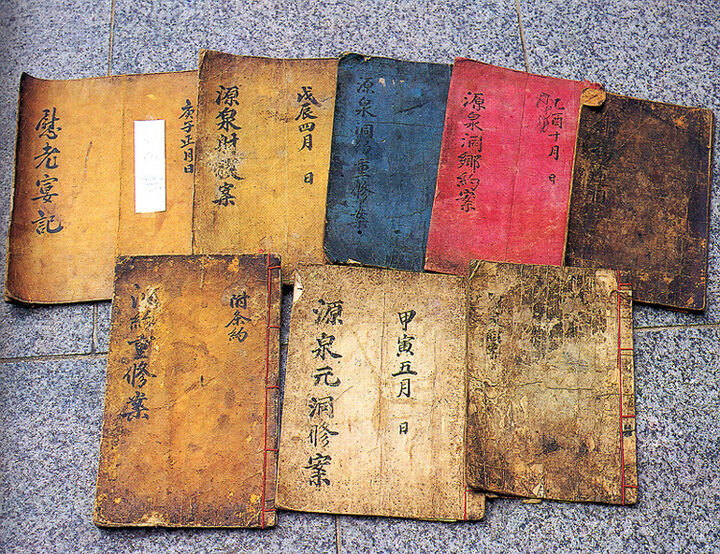 庚子正月日
慰老宴記
戊辰四月 日
源泉財案
源泉洞重修案
己酉十月 日
源泉洞鄉約案
附条約
洞約重修案
甲寅五月 日
源泉元洞修案